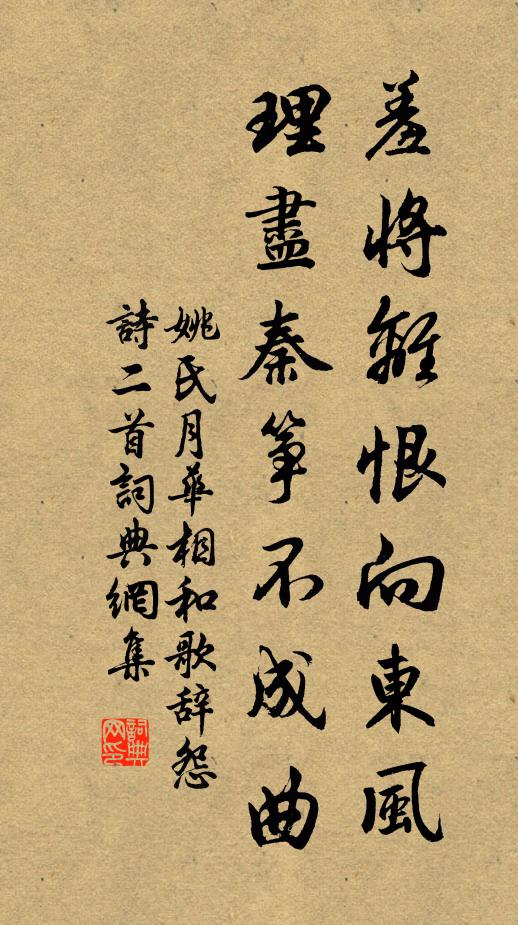 羞將離恨向東風
理盡秦箏不成曲
姚氏月華相和歌辞怨
詩二首詞典網集
詞典网印